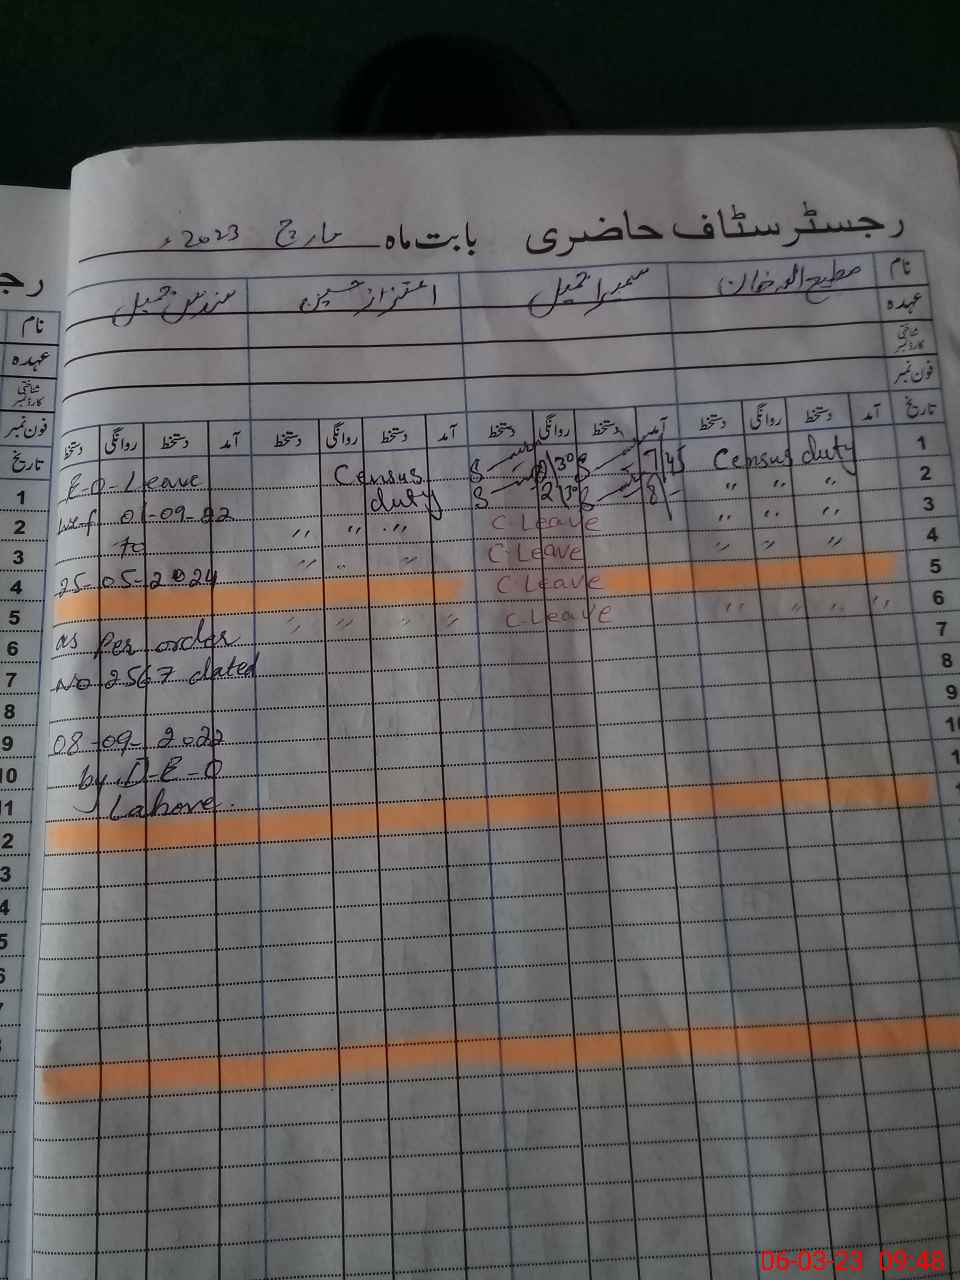 رجسٹر سٹاف حاضری بابت ماہ مارچ 2023ء
نام مطیع اللہ خان سمیرا جمیل اعتزاز حسین سندس جمیل
عہدہ
شناختی کارڈ نمبر
فون نمبر
تاریخ آمد دستخط روانگی دستخط آمد دستخط روانگی دستخط آمد دستخط روانگی دستخط آمد دستخط روانگی دستخط
1 Census duty 7/45 Census E-O-Leave
2 " " " 8/- 2/30 duty w.e.f 01-09-22
3 " " " C. Leave " " " to
4 " " " C. Leave " " " 25-05-2024
5 C Leave
6 " " " " C. Leave " " " " as Per order
7 No 2567 dated
8
9 08-09-2022
10 by D-E-O
Lahore.
نام
عہدہ
شناختی کارڈ نمبر
فون نمبر
تاریخ
1
2
3
4
5
6
7
8
9
10
11
2
3
4
5
06-03-23 09:48